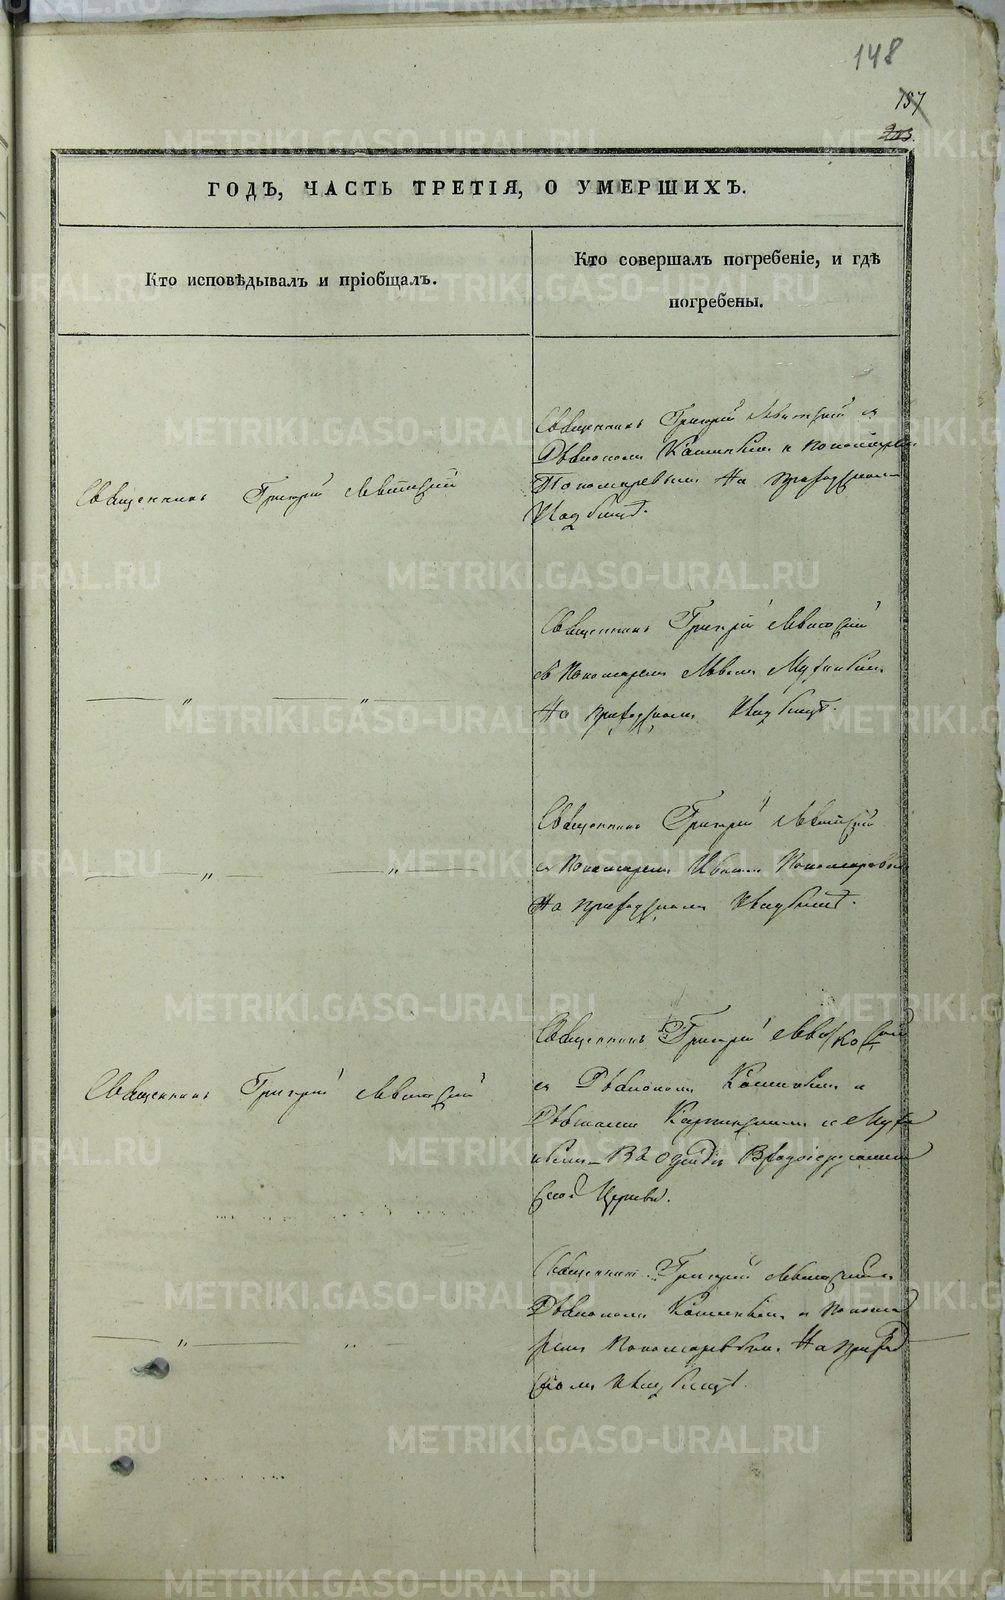 148
157
203.
ГОДЪ, ЧАСТЬ ТРЕТІЯ, О УМЕРШИХЪ.
Кто исповѣдывалъ и пріобщалъ.
Кто совершалъ погребеніе, и гдѣ
погребены.
Священникъ Григорій Левитскій
Священникъ Григорій Левитскій съ
Діакономъ Кашинымъ и пономаремъ
Пономаревымъ На приходскомъ
Кладбищѣ.
— „ — „ —
Священникъ Григорій Левитскій
съ Пономаремъ
На приходскомъ Кладбищѣ.
— „ — „ —
Священникъ Григорій Левитскій
съ Пономаремъ Иваномъ Пономаревымъ
На приходскомъ Кладбищѣ.
Священникъ Григорій Левитскій
Священникъ Григорій
съ Діакономъ и
въ оградѣ
ской Церкви.
— „ — „ —
Священникъ Григорій Левитскій съ
Діакономъ и понома
ремъ Пономаревымъ На приход
скомъ Кладбищѣ.
METRIKI.GASO-URAL.RU